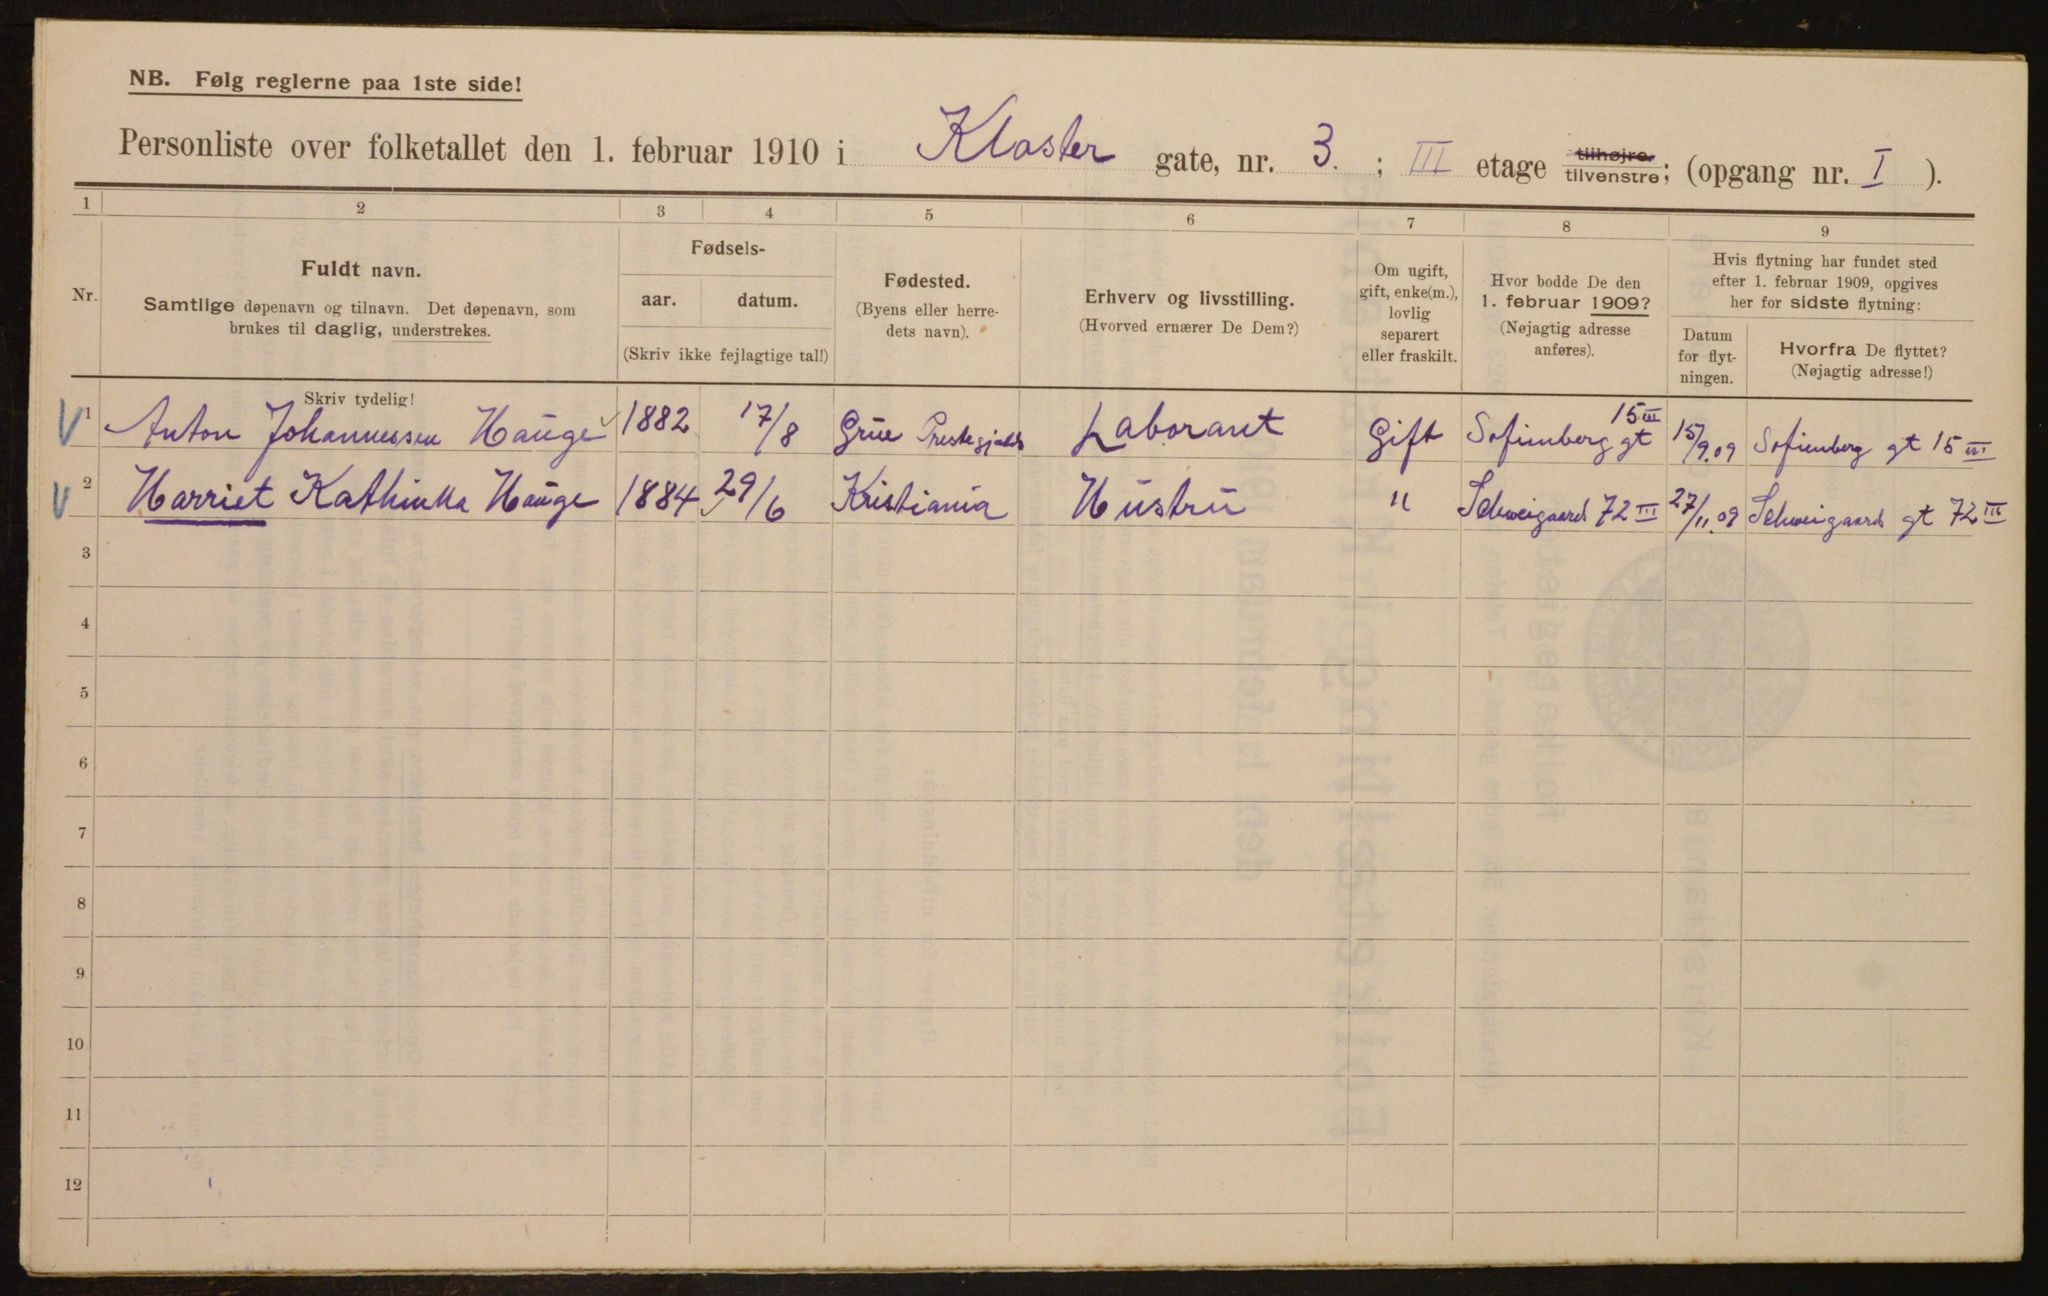 NB. Følg reglerne paa 1ste side!
Personliste over folketallet den 1. februar 1910 i Kloster gate, nr. 3. ; III etage tilhøjre tilvenstre; (opgang nr. I ).
1 2 3 4 5 6 7 8 9
Nr.
Fuldt navn.
Samtlige døpenavn og tilnavn. Det døpenavn, som
brukes til daglig, understrekes.
Skriv tydelig!
Fødsels-
aar. datum.
(Skriv ikke fejlagtige tal!)
Fødested.
(Byens eller herre-
dets navn).
Erhverv og livsstilling.
(Hvorved ernærer De Dem?)
Om ugift,
gift, enke(m.),
lovlig
separert
eller fraskilt.
Hvor bodde De den
1. februar 1909?
(Nøjagtig adresse
anføres).
Hvis flytning har fundet sted
efter 1. februar 1909, opgives
her for sidste flytning:
Datum
for flyt-
ningen.
Hvorfra De flyttet?
(Nøjagtig adresse!)
1 Anton Johannessen Hauge 1882 17/8 Grue Prestegjeld Laborant Gift Sofienberg gt 15 III 15/9.09 Sofienberg gt 15 III
2 Harriet Kathinka Hauge 1884 29/6 Kristiania Hustru " Schweigaards 72 III 27/11.09 Schweigaards gt 72 III
3
4
5
6
7
8
9
10
11
12